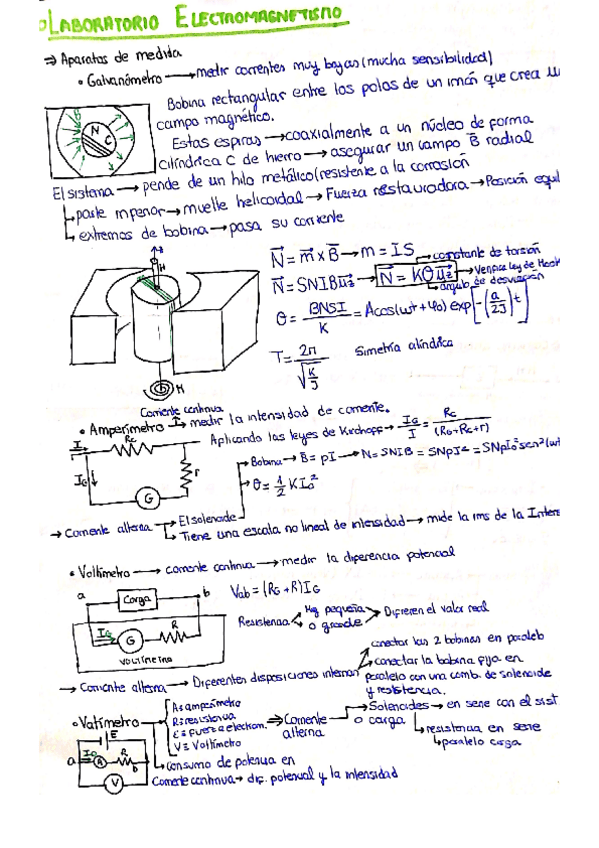 LABORATORIO ELECTROMAGNETISMO
⇒ Aparatos de medida
• Galvanómetro → medir corrientes muy bajas (mucha sensibilidad)
Bobina rectangular entre los polos de un imán que crea un
campo magnético.
Estas espiras → coaxialmente a un núcleo de forma
cilíndrica C de hierro → asegurar un campo B radial
N
C
El sistema → pende de un hilo metálico (resistente a la corrosión
↳ parte → muelle helicoidal → Fuerza restauradora → Posición equil
↳ extremos de bobina → pasa su corriente
H
N = m x B → m = IS
→ constante de torsión
N = SNIBuz → N = KΘuz → Verifica ley de Hook
→ ángulo de desviación
Θ = BNSI/K = Acos(wt + φ0) exp[-(a/2J)t]
T = 2π/√(K/J)
Simetría cilíndrica
H
Corriente continua
• Amperímetro → medir la intensidad de corriente.
Aplicando las leyes de Kirchoff → IG/I = Rc/(RG+Rc+r)
I
Rc
IG
r
G
→ Bobina → B = pI → N = SNIB = SNpI² = SNpI0²sen²(wt
→ Θ = 1/2 KI0²
→ Corriente alterna → El solenoide
↳ Tiene una escala no lineal de intensidad → mide la rms de la Inten
• Voltímetro → corriente continua → medir la diferencia potencial
a
Carga
b
Vab = (RG + R)IG
IG
G
R
VOLTÍMETRO
Resistencia
Muy pequeña
o grande
→ Difieren el valor real
→ Corriente alterna → Diferentes disposiciones internas
conectar las 2 bobinas en paralelo
conectar la bobina fija en
paralelo con una comb. de solenoide
y resistencia.
• Vatímetro
A ≡ amperímetro
R ≡ resistencia
ε ≡ fuerza electrom.
V ≡ Voltímetro
⇒ Corriente
alterna
→ Solenoides → en serie con el sist
o carga
↳ resistencia en serie
↳ paralelo carga
E
a
A
R
b
V
↳ Consumo de potencia en
Corriente continua → dif. potencial y la intensidad